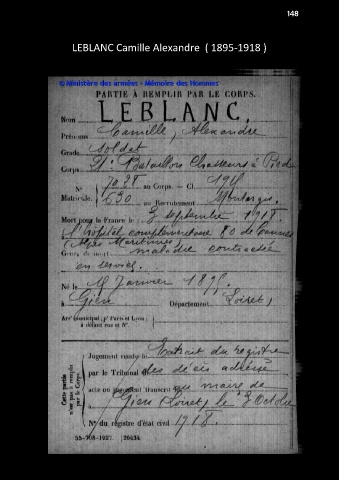 148
LEBLANC Camille Alexandre ( 1895-1918 )
© Ministère des armées - Mémoire des Hommes
PARTIE À REMPLIR PAR LE CORPS.
Nom LEBLANC.
Prénoms Camille, Alexandre
Grade soldat
Corps Bataillon Chasseurs à Pied
N° au Corps. — Cl. 1915
Matricule. 630 au Recrutement Montargis
Mort pour la France le 3 septembre 1918
l'hôpital complémentaire 80 de Cannes
(Alpes Maritimes)
Genre de mort maladie contractée
en service.
Né le Janvier 1895
à Gien Département Loiret
Arr¹ municipal (p' Paris et Lyon),
à défaut rue et N°.
Cette partie
n'est pas à remplir
par le Corps.
Jugement rendu le Extrait du registre
par le Tribunal des décès adressé
acte ou jugement transcrit le au maire de
à Gien (Loiret) le Octobre
N° du registre d'état civil 1918.